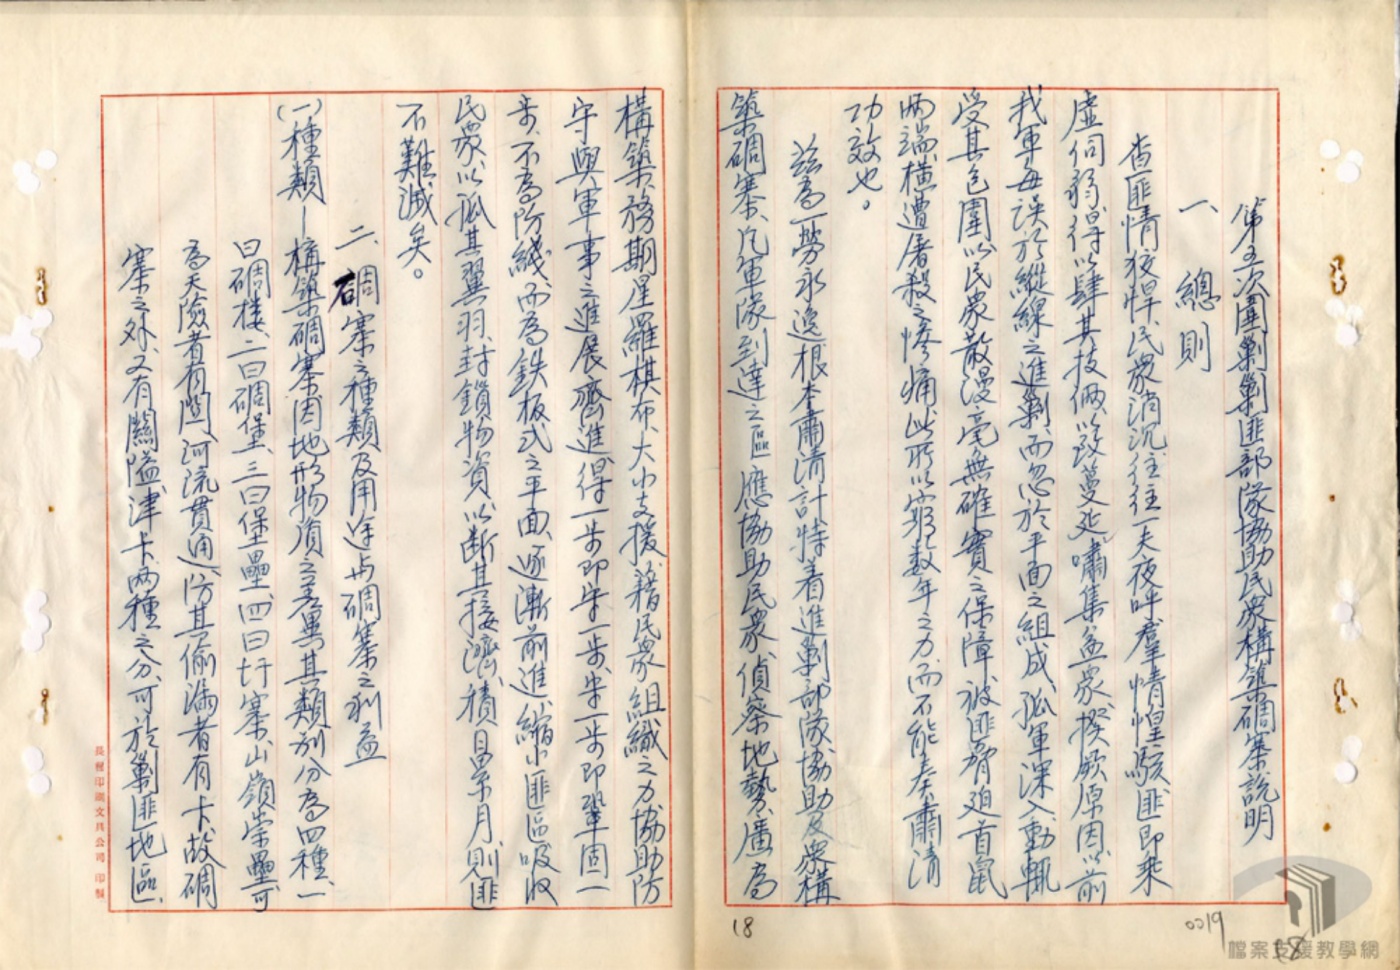 第五次圍剿剿匪部隊協助民衆構築碉寨說明
一、總則
查匪情狡悍，民衆消沉，往往一夫夜呼，羣情惶駭，匪即乘
虛伺弱，得以肆其技倆，以致蔓延嘯集益衆，揆厥原因，以前
我軍每誤於縱線之進剿，而忽於平面之組成，孤軍深入，動輒
受其包圍，以民衆散漫，毫無確實之保障，被匪脅迫，首鼠
兩端，橫遭屠殺之慘痛，此所以窮數年之力，而不能奏肅清
功效也。
茲為一勞永逸，根本肅清計，特着進剿部隊協助及衆構
築碉寨，凡軍隊到達之區，應協助民衆，偵察地勢，廣為
構築，務期星羅棋布，大小支援，藉民衆組織之力，協助防
守，與軍事之進展齊進，得一步即守一步，守一步即鞏固一
步，不為防綫，而為鉄板式之平面，逐漸前進，縮小匪區，吸收
民衆，以孤其翼羽，封鎖物資，以斷其接濟，積日累月，則匪
不難滅矣。
二、碉寨之種類及用途与碉寨之利益
(一)種類—構築碉寨，因地形物質之差異，其類別分為四種，一
曰碉楼，二曰碉堡，三曰堡壘，四曰圩寨，山嶺崇壘可
為天險者有關，河流貫通，防其偷漏者有卡，故碉
寨之外，又有關隘津卡兩種之分，可於剿匪地區，
長樫印刷文具公司 印製
18
0019
18
檔案支援教學網